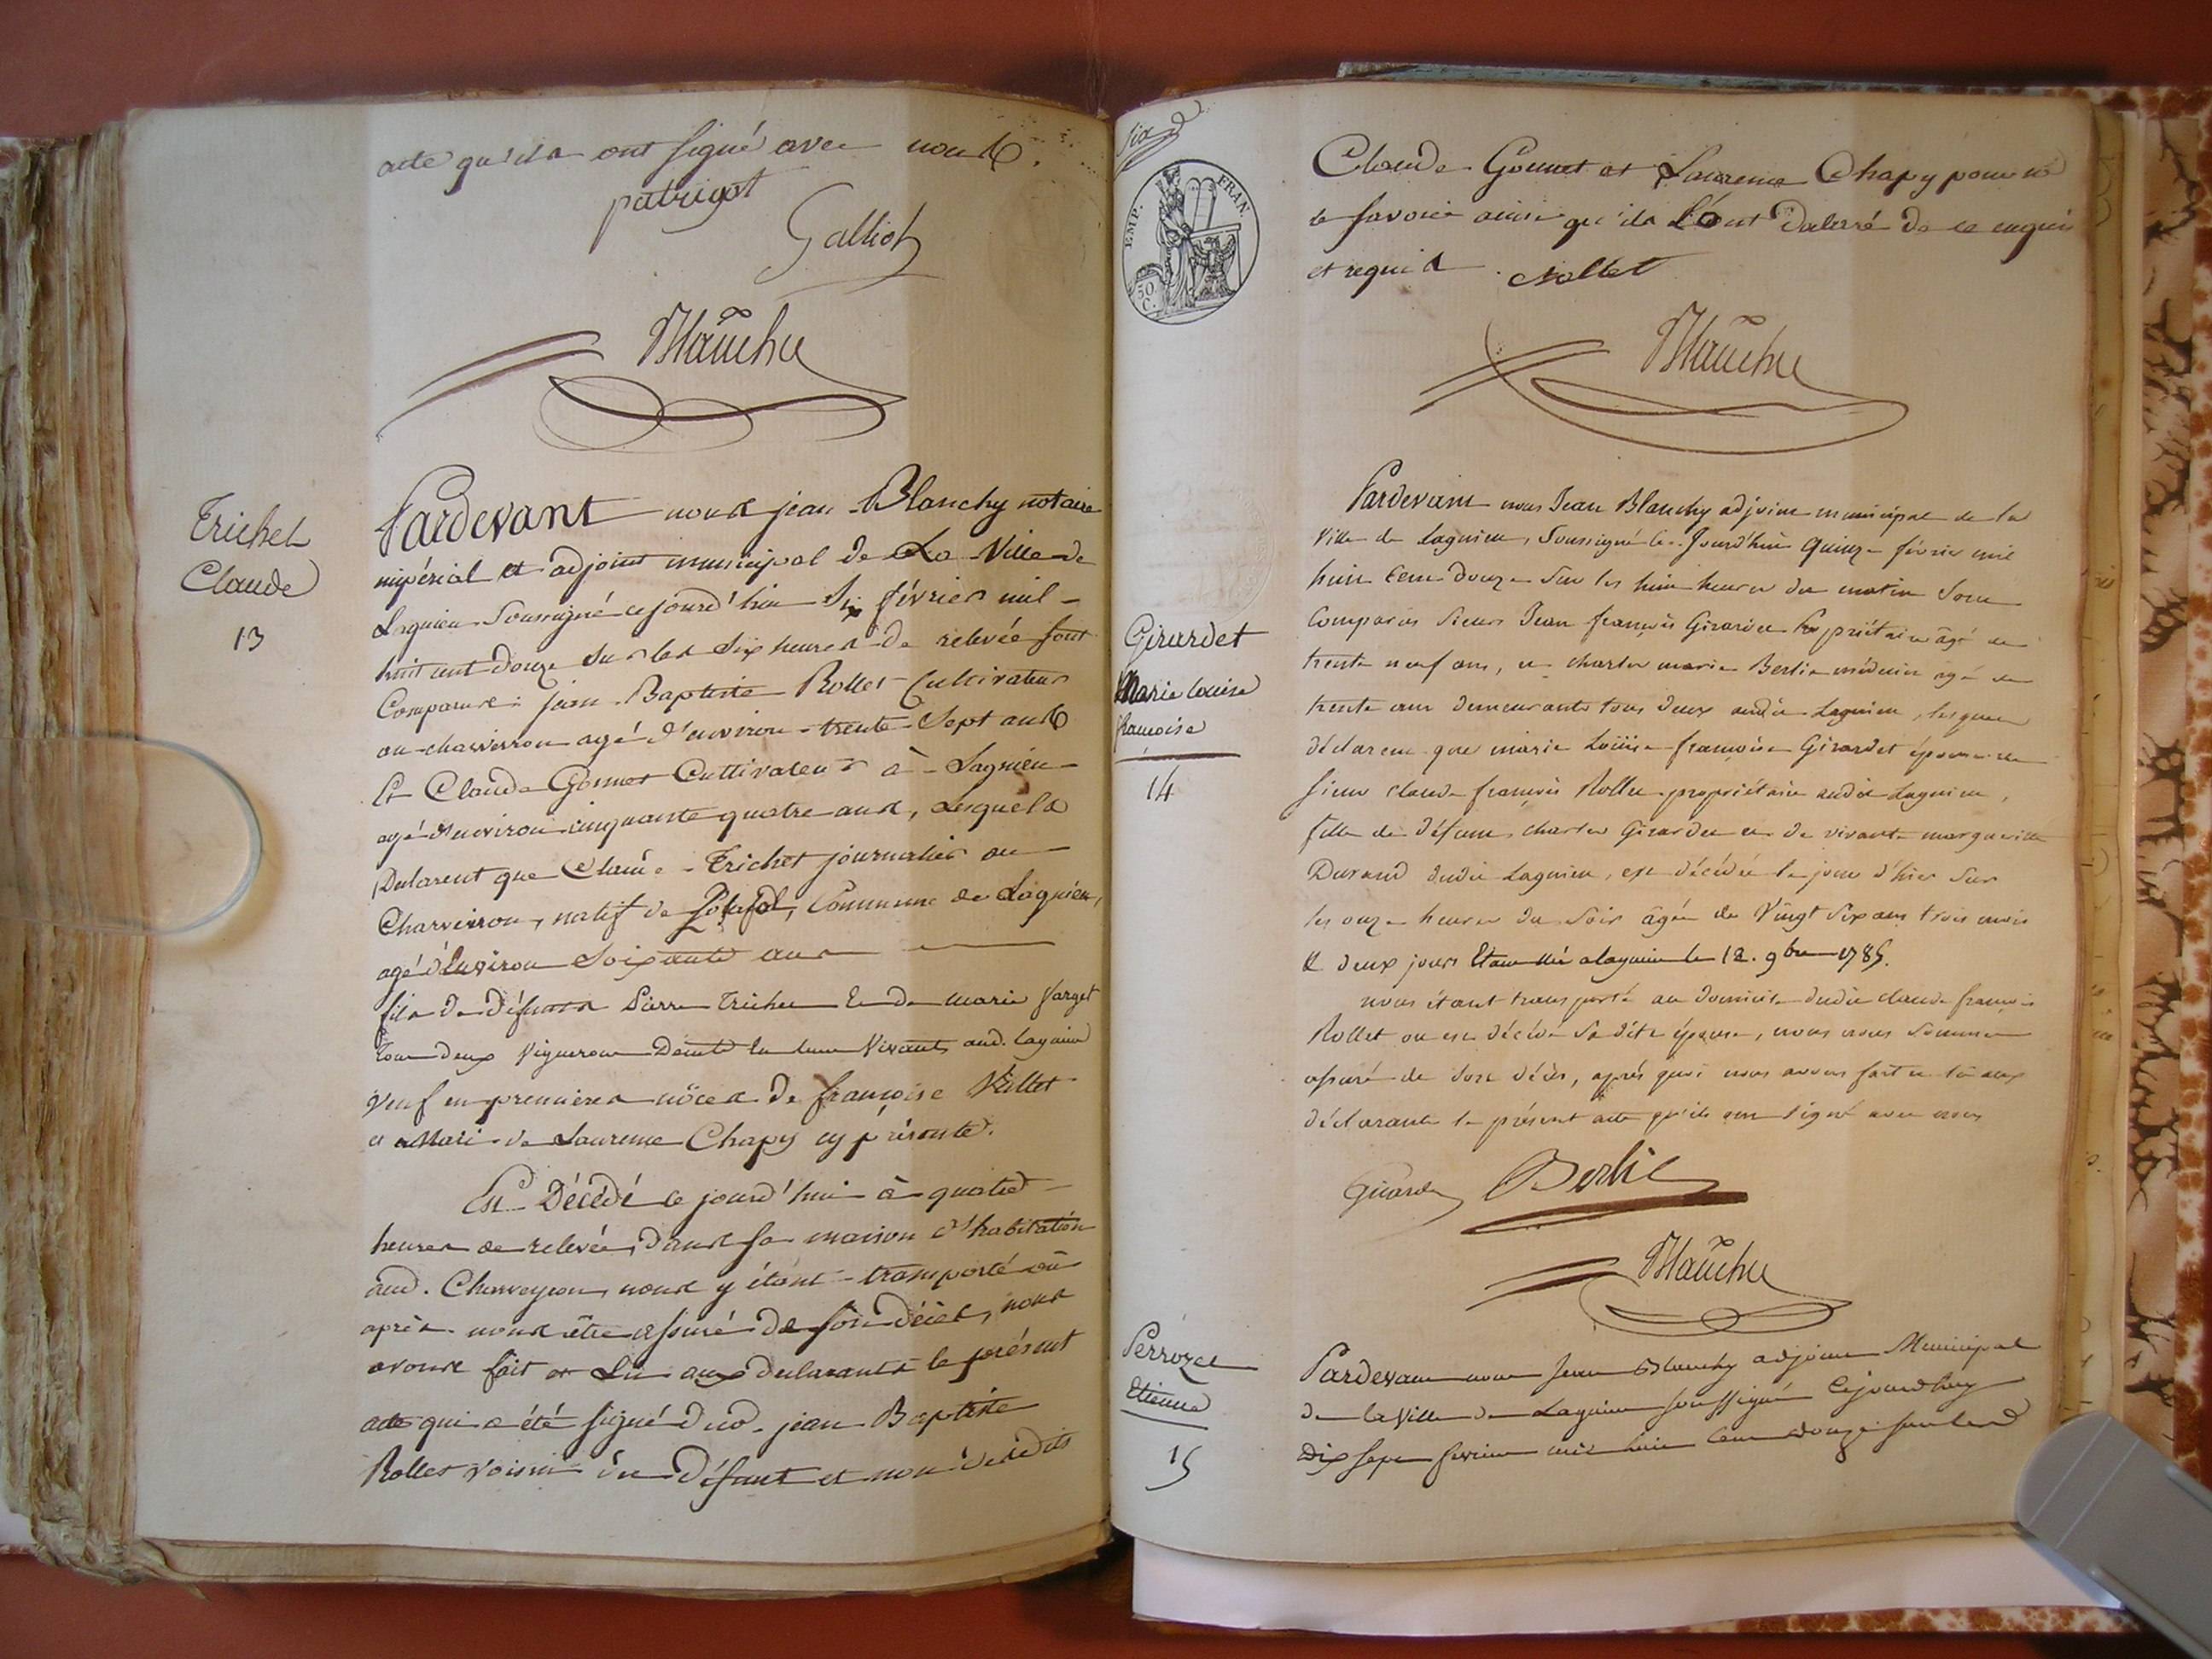 acte qu'ils ont signé avec nous.
patrigot
Galliot
Blanchy
Trichet
Claude
13
Pardevant nous jean Blanchy notaire
impérial et adjoint municipal de La Ville de
Lagnieu Soussigné cejourd'hui Six février mil
huit cent douze Sur les Six heures de relevée sont
Comparus jean Baptiste Rollet Cultivateur
au charveyron agé d'environ trente Sept ans
Et Claude Gonnet Cultivateur à Lagnieu
agé d'environ cinquante quatre ans, Lesquels
Declarent que Claude Trichet journalier au
Charveiron, natif de Commune de Lagnieu,
agé d'Environ Soixante ans
fils de défunts Pierre Trichet et de marie farget
Tous deux Vignerons Vivants aud. Lagnieu
Veuf en premieres nôces de françoise Vallet
et Mari de Laurence Chapy cy présente.
Est Décédé ce jourd'hui à quatre
heures de relevée, dans sa maison d'habitation
aud. Charveyron, nous y étant transporté où
après nous être assuré de son décès, nous
avons fait et Lu aux declarants le présent
acte qui a été signé dud. jean Baptiste
Rollet voisin du défunt et non desdits
six
EMP. FRAN.
50 C.
Claude Gonnet et Laurence Chapy pour ne
le savoir ainsi qu'ils L'ont Déclaré de ce enquis
et requis. Rollet
Blanchy
Girardet
Marie louise
françoise
14
Pardevant nous Jean Blanchy adjoint municipal de la
Ville de Lagnieu, Soussigné Ce Jourd'hui Quinze février mil
huit Cent Douze Sur les huit heures du matin Sont
Comparus Sieurs Jean françois Girardet Propriétaire âgé de
trente neuf ans, et charles marie Berlie médecin agé de
trente ans demeurants tous deux audit Lagnieu, lesquels
déclarent que marie Loüise françoise Girardet épouse de
Sieur claude françois Rollet propriétaire audit Lagnieu,
fille de défunt charles Girardet et de vivante marguerite
Durand dudit Lagnieu, est décédée le jour d'hier Sur
les onze heures du Soir âgée de Vingt Six ans trois mois
& deux jours Etant Née a lagnieu le 12. 9bre 1785.
nous étant transporté au Domicile dudit claude françois
Rollet ou est décédé Sa dite épouse, nous nous Sommes
assuré de Son décès, après quoi nous avons fait et lû aux
déclarants le présent acte qu'ils ont Signé avec nous
Girardet Berlie
Blanchy
Perrozet
Etienne
15
Pardevant nous Jean Blanchy adjoint Municipal
de la Ville de Lagnieu soussigné Cejourdhuy
Dix sept fevrier mil huit Cent douze sur les